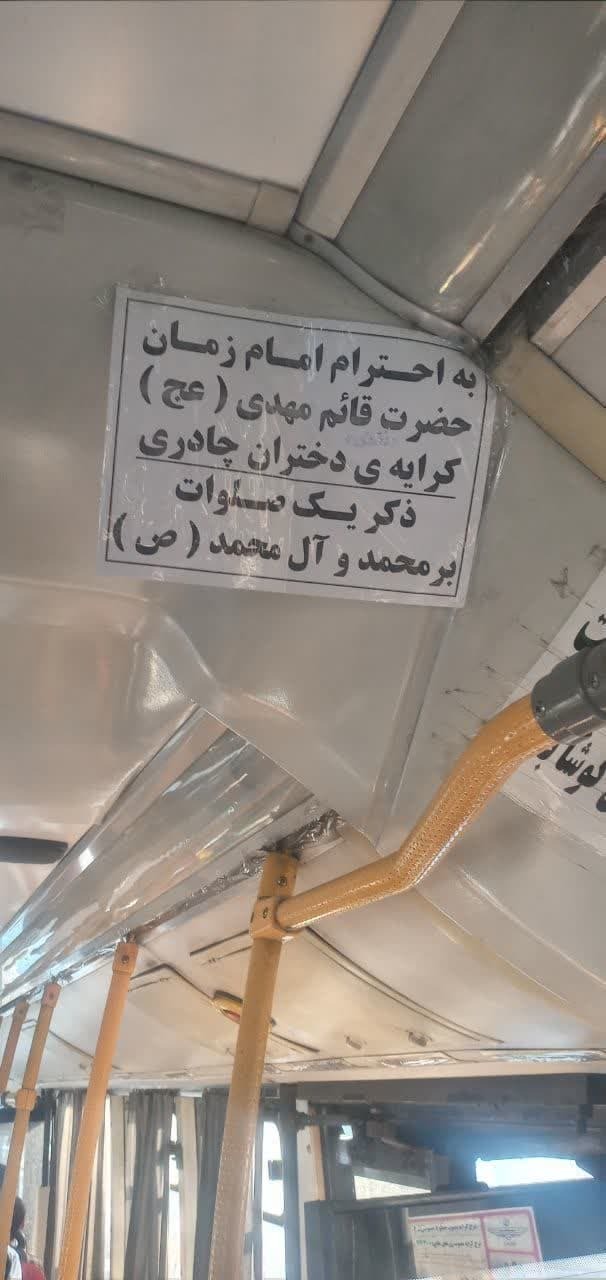 به احترام امام زمان
حضرت قائم مهدی ( عج )
کرایه ی دختران چادری
ذکر یک صلوات
بر محمد و آل محمد ( ص )